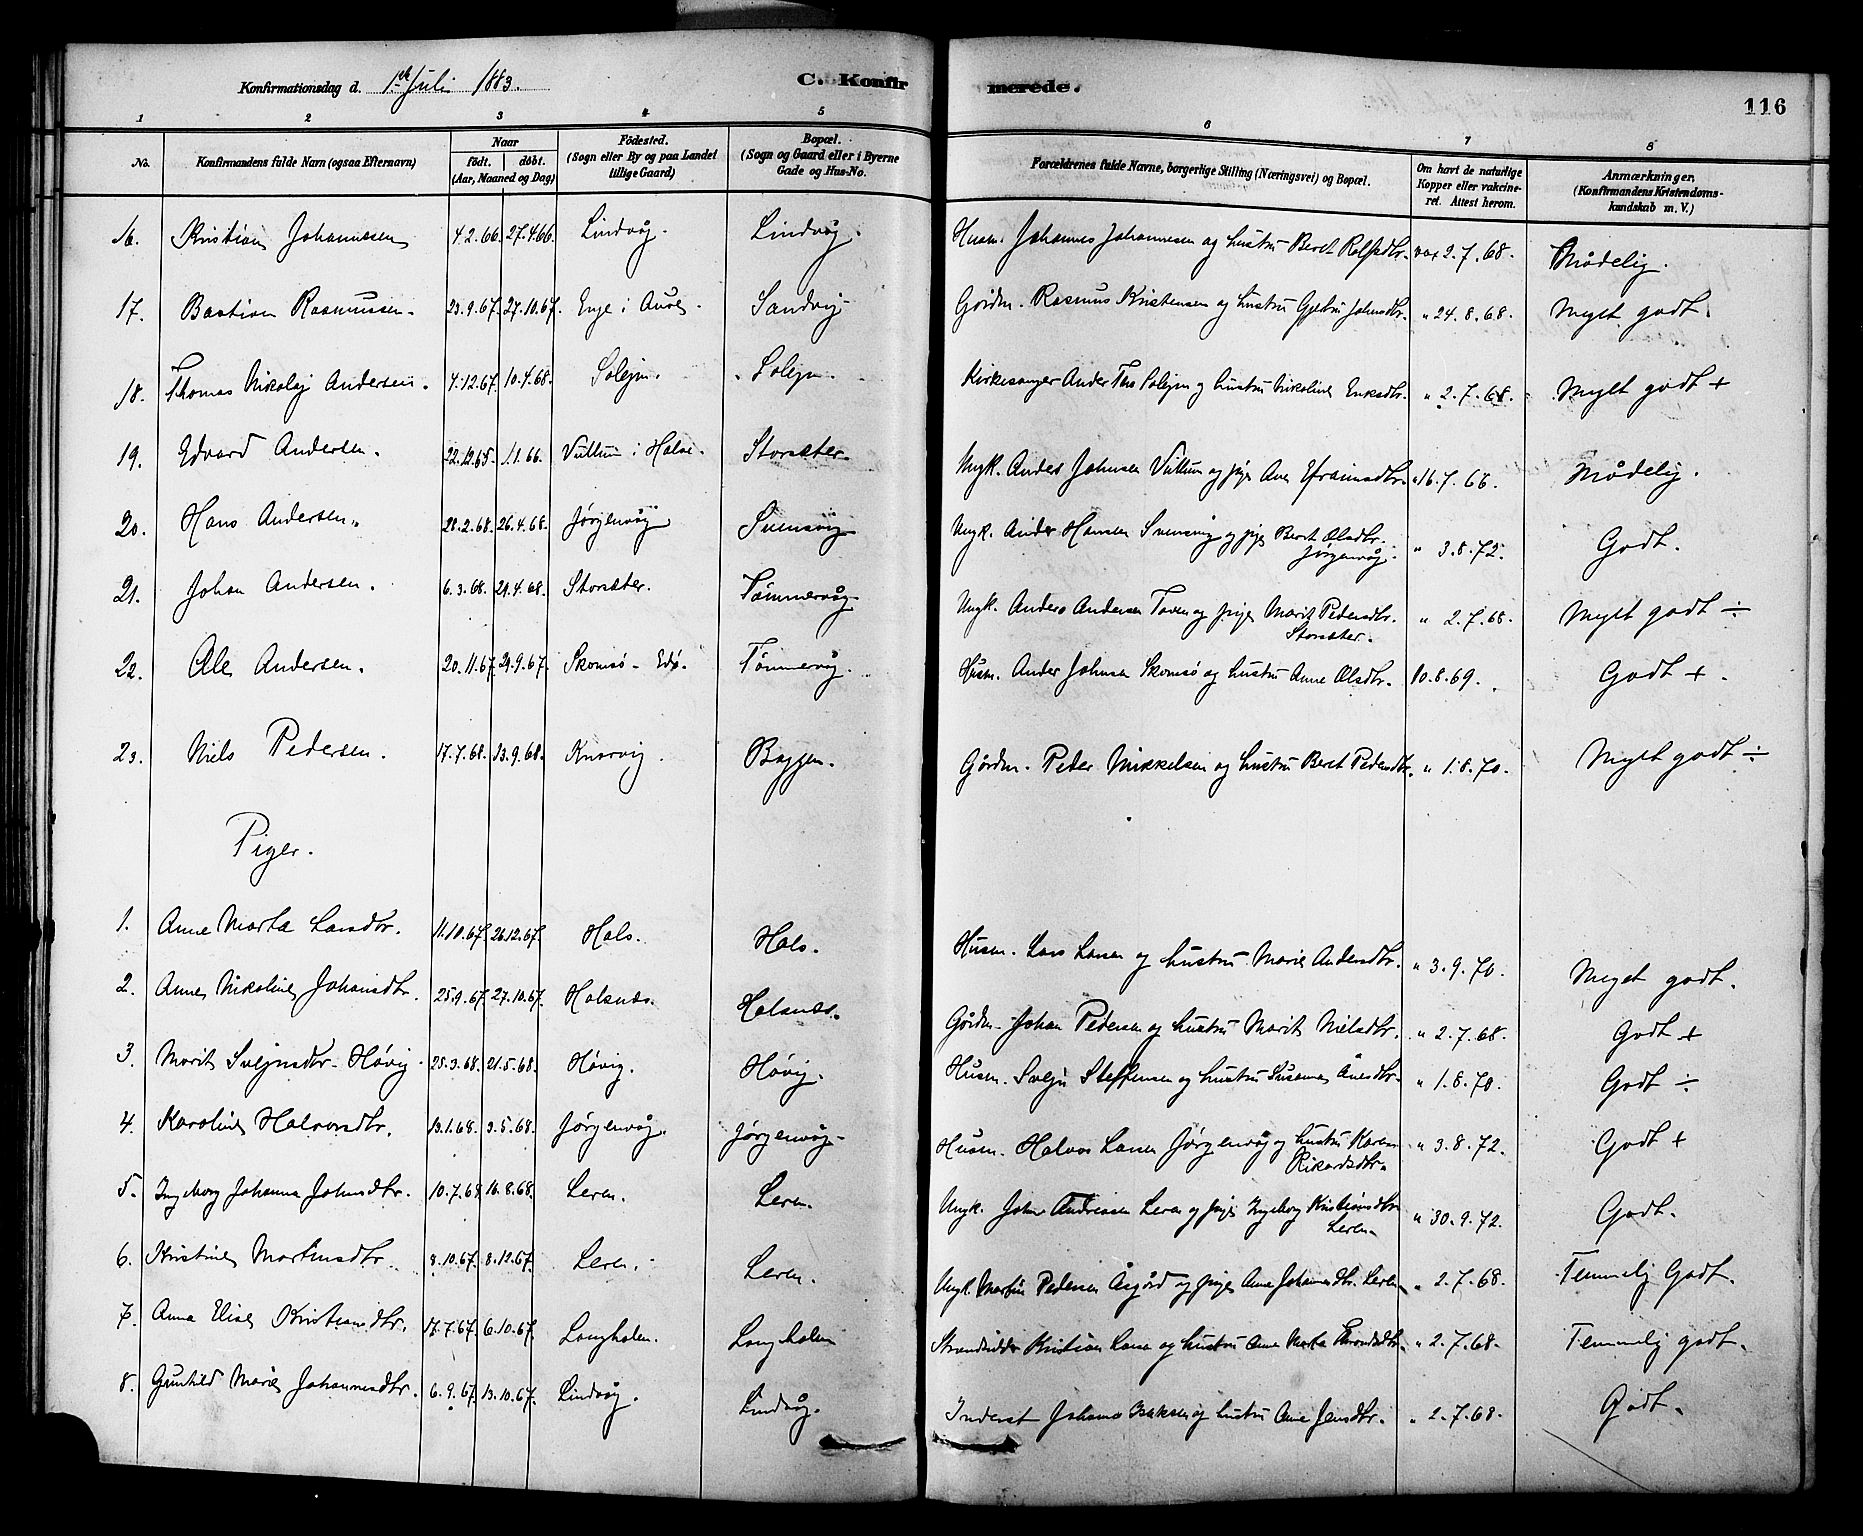 Konfirmationsdag d. 1ste Juli 1883. C. Konfirmerede. 116
1 2 3 4 5 6 7 8
No. Konfirmandens fulde Navn (ogsaa Efternavn) Naar födt. döbt. (Aar, Maaned og Dag) Födested. (Sogn eller By og paa Landet tillige Gaard) Bopæl. (Sogn og Gaard eller i Byerne Gade og Hus-No. Forældrenes fulde Navne, borgerlige Stilling (Næringsvei) og Bopæl. Om havt de naturlige Kopper eller vakcineret. Attest herom. Anmærkninger. (Konfirmandens Kristendomskundskab m. V.)
16. Kristian Johannesen 4.2.66. 27.4.66. Lindvåg. Lindvåg. Husm. Johannes Johannesen og hustru Beret Rolfsdtr. vax 2.7.68. Mådelig.
17. Bastian Rasmussen. 23.9.67. 27.10.67. Enge i Aure. Sandvig Gårdm. Rasmus Kristensen og hustru Gjertru Johnsdtr. " 24.8.68. Meget godt.
18. Thomas Nikolaj Andersen. 4.12.67. 10.4.68. Solejm. Solejm. Kirkesanger Ander Ths Solejm og hustru Nikoline Eriksdtr. " 2.7.68. Meget godt +
19. Edvard Andersen. 22.12.65. 1.1.66. Vullum i Halse. Storsæter. Ungk. Anders Johnsen Vullum og pige Ane Efraimsdtr. " 16.7.66. Mådelig.
20. Hans Andersen. 28.2.68. 26.4.68. Jørgenvåg Svensvig Ungk. Ander Hansen Svensvig og pige Beret Olsdtr. Jørgenvåg. " 3.8.72. Godt.
21. Johan Andersen. 6.3.68. 21.4.68. Storsæter. Tømmervåg. Ungk. Anders Andersen Taven og pige Marit Pedersdtr. Storsæter. " 2.7.68. Meget godt ÷
22. Ole Andersen. 20.11.67. 29.9.67. Skomsø - Edø. Tømmervåg. Husm. Ander Johnsen Skomsø og hustru Anne Olsdtr. 10.8.69. Godt +.
23. Niels Pedersen. 17.7.68. 13.9.68. Knarvig. Baggen. Gårdm. Peder Mikkelsen og hustru Beret Pedersdtr. " 1.8.70. Meget godt ÷
Piger.
1. Anne Marta Larsdtr. 11.10.67. 26.12.67. Hals. Hals. Husm. Lars Larsen og hustru Marie Andersdtr. " 3.9.70. Meget godt.
2. Anne Nikoline Johansdtr. 25.9.67. 27.10.67. Halsnes. Halsnæs. Gårdm. Johan Pedersen og hustru Marit Nielsdtr. " 2.7.68. Godt +
3. Marit Svejnsdtr. Høvig. 25.3.68. 21.5.68. Høvig. Høvig. Husm. Svejn Steffensen og hustru Susanna Ånesdtr. " 1.8.70. Godt ÷
4. Karoline Halvorsdtr. 13.1.68. 3.5.68. Jørgenvåg. Jørgenvåg. Husm. Halvor Larsen Jørgenvåg og hustru Karen Rikardsdtr. " 3.8.72. Godt +
5. Ingeborg Johanna Johnsdtr. 10.7.68. 16.8.68. Leren. Leren. Ungk. John Andreasen Leren og pige Ingeborg Kristiansdtr. Leren. " 30.9.72. Godt.
6. Kristine Martinsdtr. 8.10.67. 8.12.67. Leren. Leren. Ungk. Martin Pedersen Åsgård og pige Ane Johannesdtr. Leren " 2.7.68. Temmelig Godt.
7. Anna Elise Kristiansdtr. 17.7.67. 6.10.67. Langholen. Langholen Strandsidder Kristian Larsen og hustru Ane Marta Thronsdtr. " 2.7.68. Temmelig godt.
8. Gunhild Marie Johannesdtr. 6.9.67. 13.10.67. Lindvåg. Lindvåg. Inderst Johannes Isaksen og hustru Ane Jensdtr. " 2.7.68. Godt.